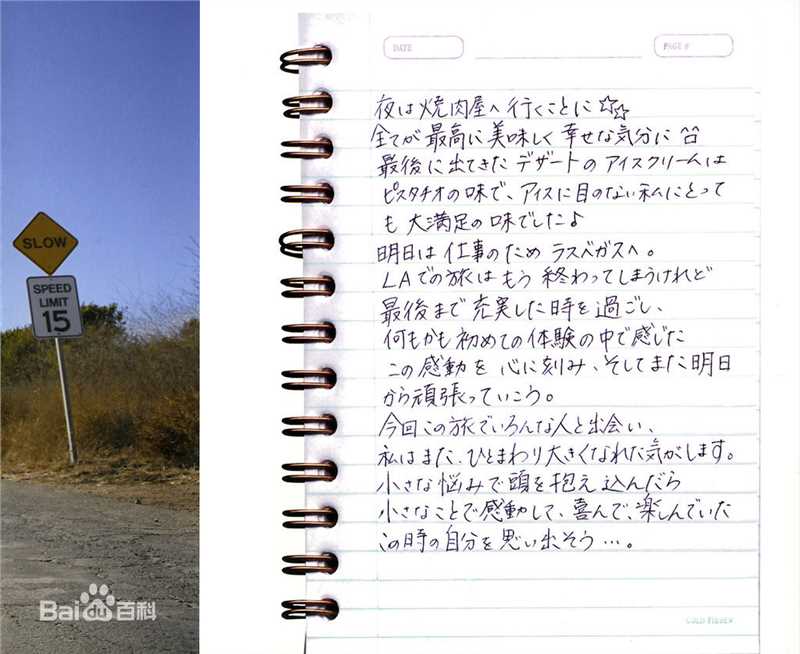 SLOW
SPEED
LIMIT
15
Baidu百科
DATE
PAGE #
夜は焼肉屋へ行くことに☆☆
全てが最高に美味しく幸せな気分に^口^
最後に出てきたデザートのアイスクリームは
ピスタチオの味で、アイスに目のない私にとって
も大満足の味でしたよ
明日は仕事のためラスベガスへ。
LAでの旅はもう終わってしまうけれど
最後まで充実した時を過ごし、
何もかも初めての体験の中で感じた
この感動を心に刻み、そしてまた明日
から頑張っていこう。
今回この旅でいろんな人と出会い、
私はまた、ひとまわり大きくなれた気がします。
小さな悩みで頭を抱え込んだら
小さなことで感動して、喜んで、楽しんでいた
この時の自分を思い出そう…。